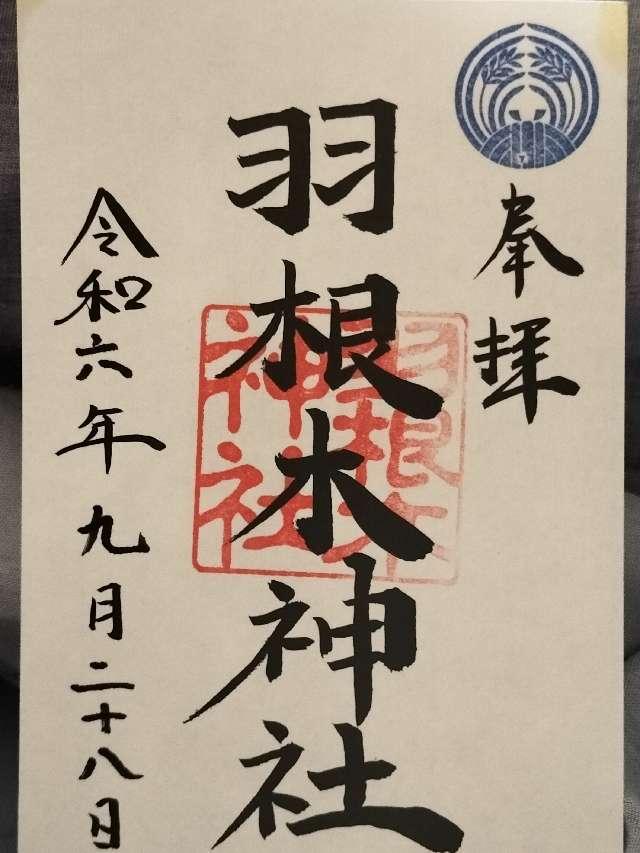 奉拝
羽根木神社
羽根木
神社
令和六年九月二十八日